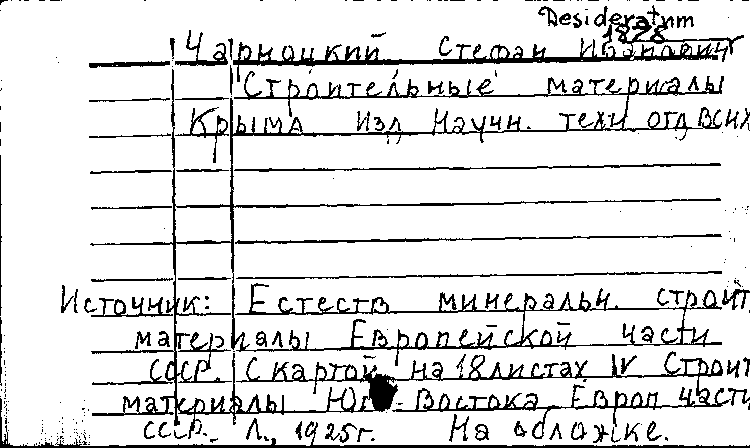 Desideratum
1878
Чарноцкий Стефан Иванович
Строительные материалы
Крыма Изд Научн. техн. отд ВСНХ
Источник: Естеств минеральн. строит
материалы Европейской части
СССР. С картой на 18 листах IV Строит
материалы Юго-Востока Европ части
СССР. Л., 1925г. На обложке.